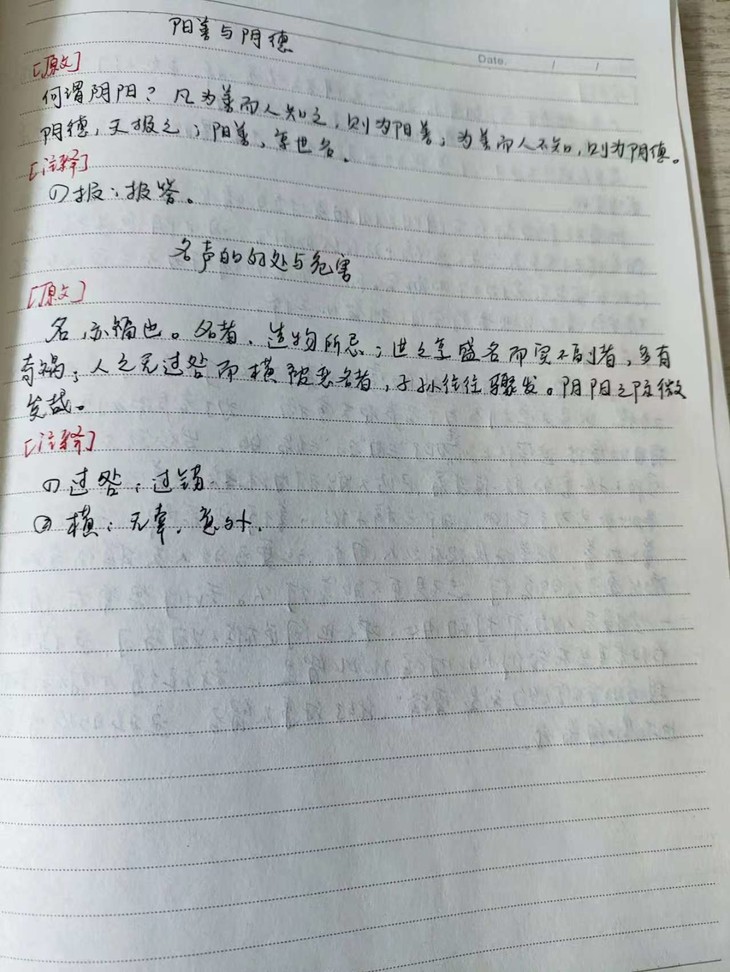 阳善与阴德
Date. / /
[原文]
何谓阴阳？凡为善而人知之，则为阳善；为善而人不知，则为阴德。
阴德，天报之；阳善，享世名。
[注释]
①报：报答。
名声的好处与危害
[原文]
名，亦福也。名者，造物所忌；世之享盛名而实不副者，多有
奇祸；人之无过咎而横被恶名者，子孙往往骤发。阴阳之际微
矣哉。
[注释]
①过咎：过错
②横：无辜，意外.